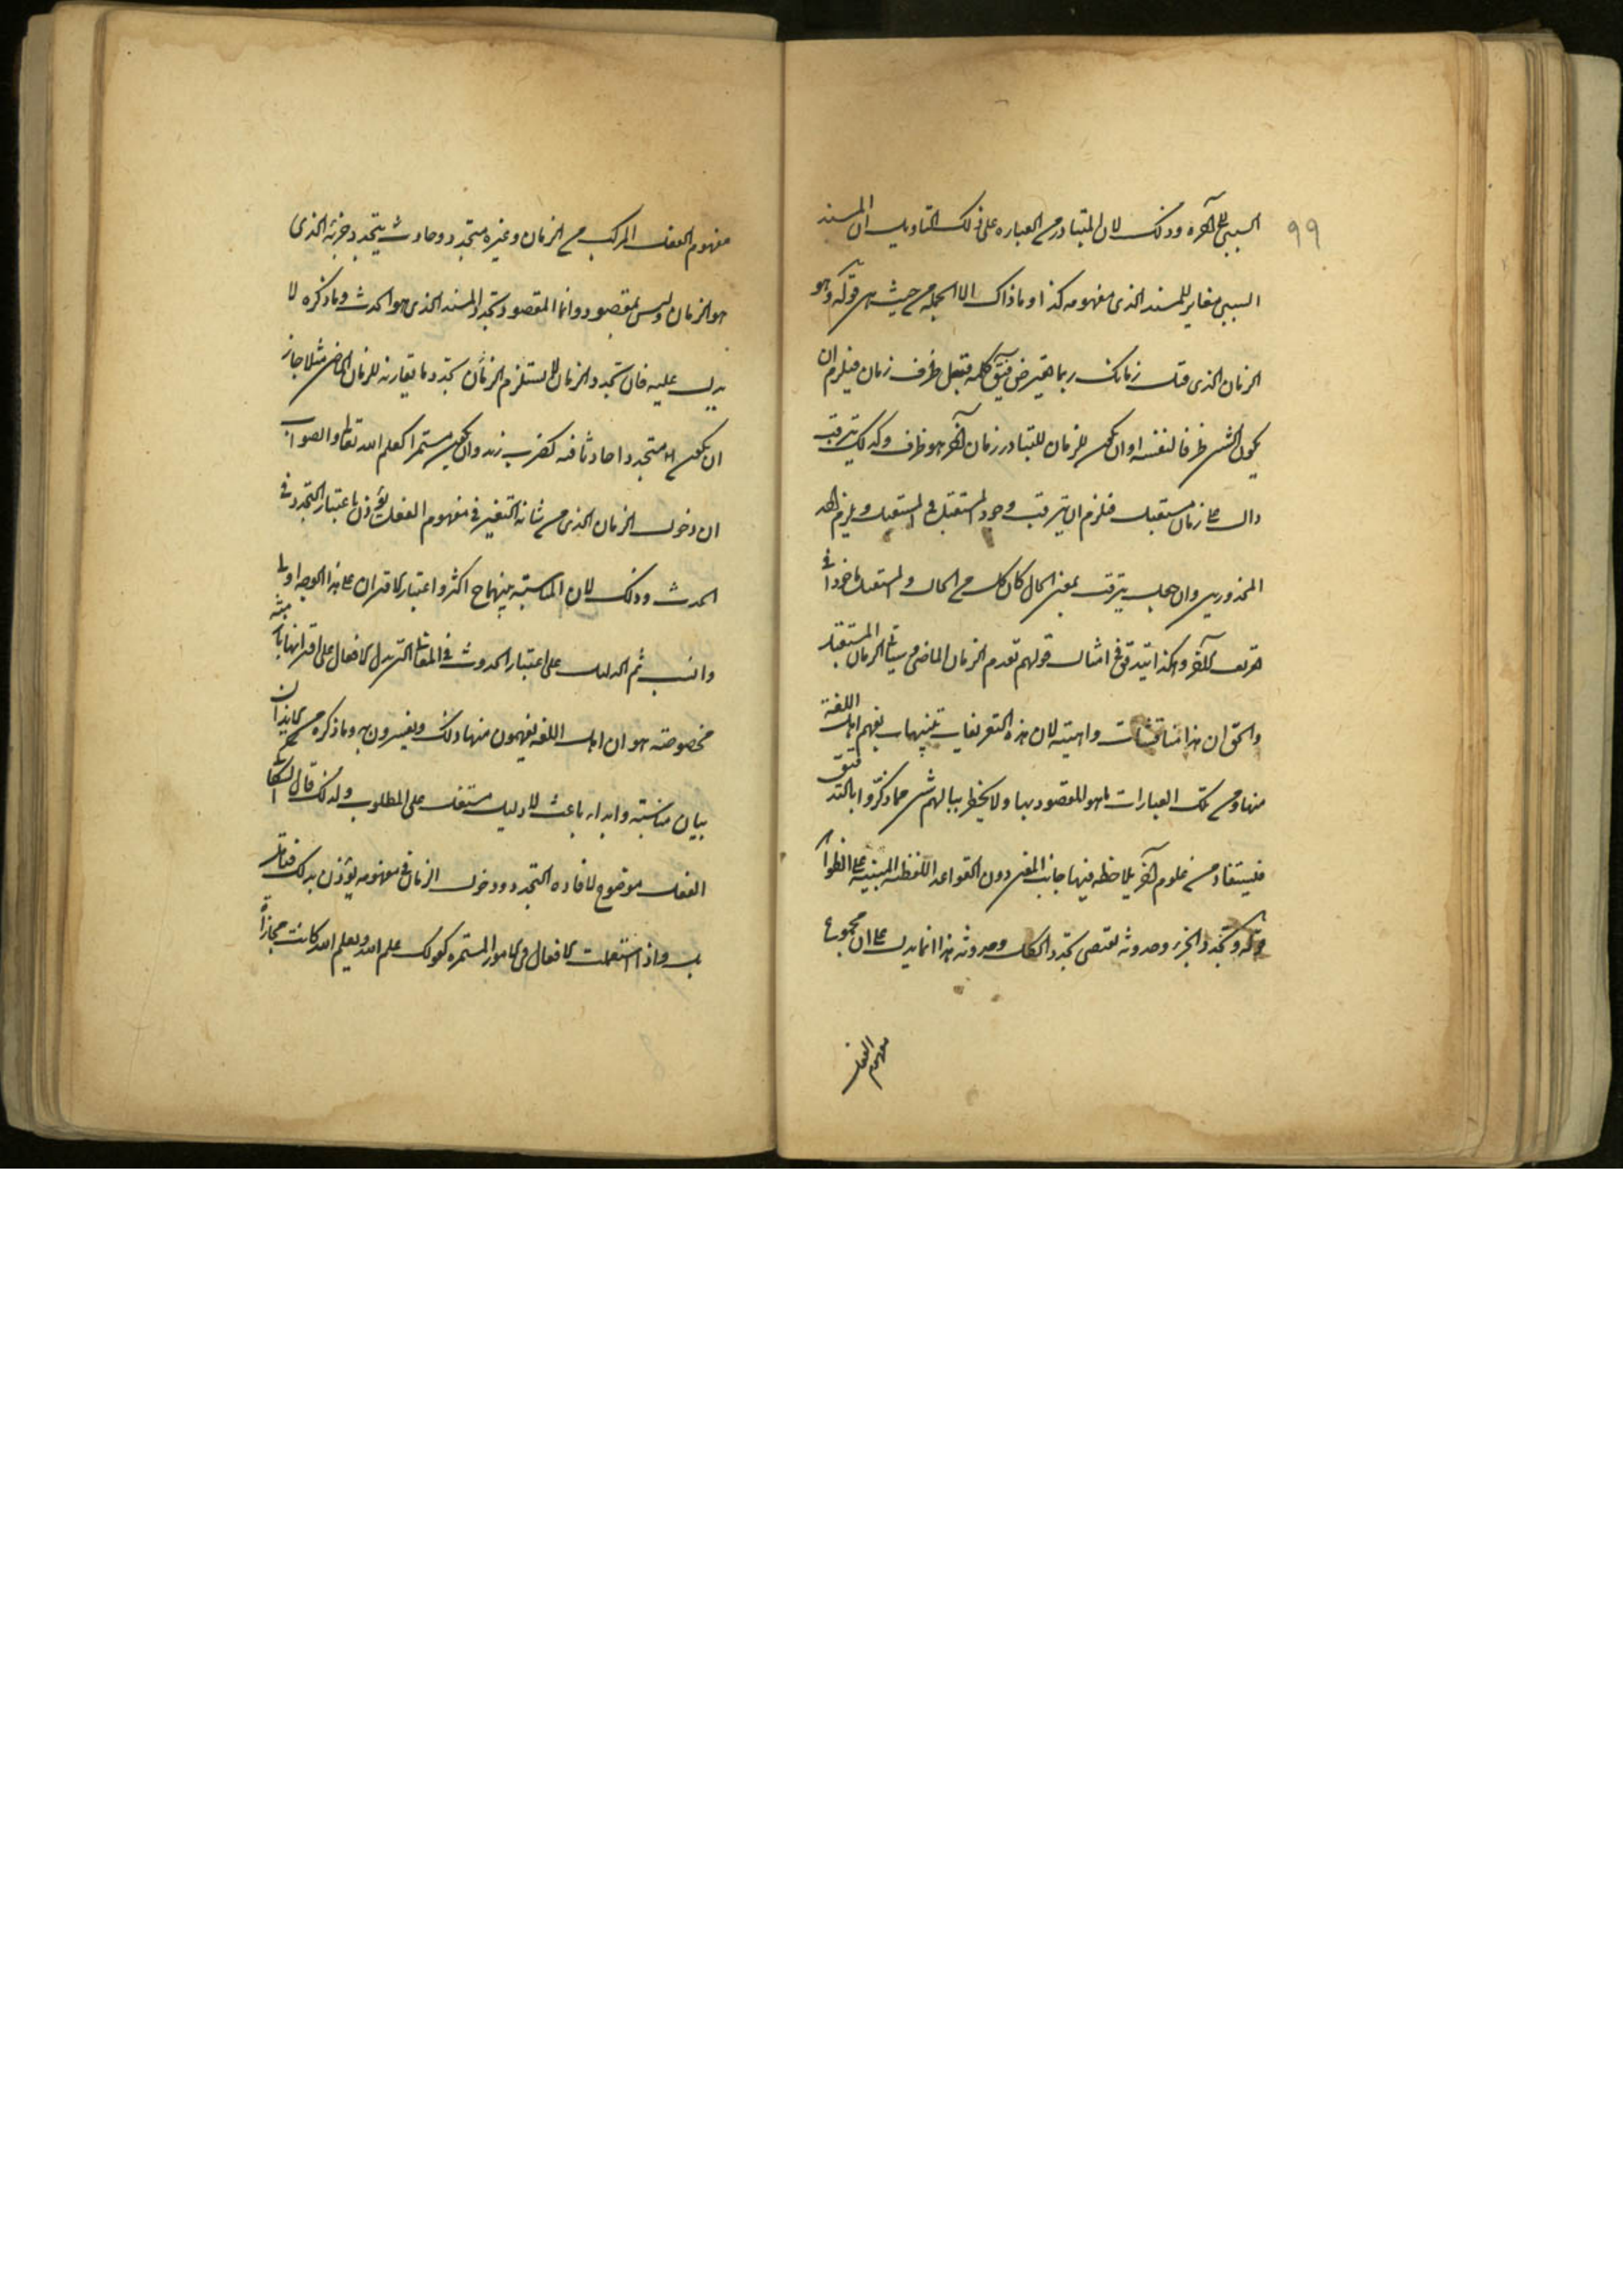 ٩٩
السببى الى آخره وذلك لان المتبادر من العباره على ذلك التاويل ان المسند
السببى مغاير للمسند الذى مفهومه كذا وما ذاك الا الجمله من حيث هى قوله وهو
الزمان الذى قبل زمانك ربما يعترض فيق كلمه قبل ظرف زمان فيلزم ان
يكون الشىء ظرفا لنفسه او ان يكون للزمان المتبادر زمان آخر هو ظرفه وكذلك يترقب
دال على زمان مستقبل فلزم ان يترقب وجود المستقبل فى المستقبل ويلزم احد
المحذورين وان جعل يترقب بمعنى الحال كان كل من الحال والمستقبل ماخوذا فى
تعريف الآخر وهكذا يتدقق فى امثال قولهم تقدم الزمان الماضى وسياتى الزمان المستقبل
والحق ان هذا مناقشات واهيته لان هذه التعريفات تنبيهات يفهم اهل اللغة
منها ومن تلك العبارات ما هو المقصود بها ولا يخطر ببالهم شىء مما ذكروا بالتدقيق
فيستفاد من علوم آخر يلاحظ فيها جانب المعنى دون القواعد اللفظية المبنية على الظواهر
قوله وتجدد الجزء وحدوثه يقتضى تجدد الكل وحدوثه هذا انما يدل على ان مجموع
مفهوم الفعل
مفهوم الفعل المركب من الزمان وغيره متجدد وحادث يتجدد جزئه الذى
هو الزمان وليس بمقصود وانما المقصود تجدد المسند الذى هو الحدث وما ذكره لا
يدل عليه فان تجدد الزمان لا يستلزم تجدد ما يقارنه للزمان الماضى مثلا جاز
ان يكون متجددا حادثا فيه كضرب زيد وان يكون مستمرا كعلم الله تعالى والصواب
ان دخول الزمان الذى من شانه التغير فى مفهوم الفعل يؤذن باعتبار التجدد فى
الحدث وذلك لان المناسبة بينهما ح اكثر واعتبار الاقتران على هذا الوجه اولى
وانسب ثم الدليل على اعتبار الحدوث فى المعانى التى يدل الافعال على اقترانها بازمنة
مخصوصة هو ان اهل اللغه يفهمون منها ذلك ويفسرون به وما ذكره من الايذان
بيان مناسبته وابداء باعث لا دليل مستقل على المطلوب ولذلك قال السكاكى
الفعل موضوع لافاده التجدد ودخول الزمان فى مفهومه يؤذن بذلك فتامل
به واذا استعملت الافعال فى الامور المستمره كقولك علم الله ويعلم الله كانت مجازا